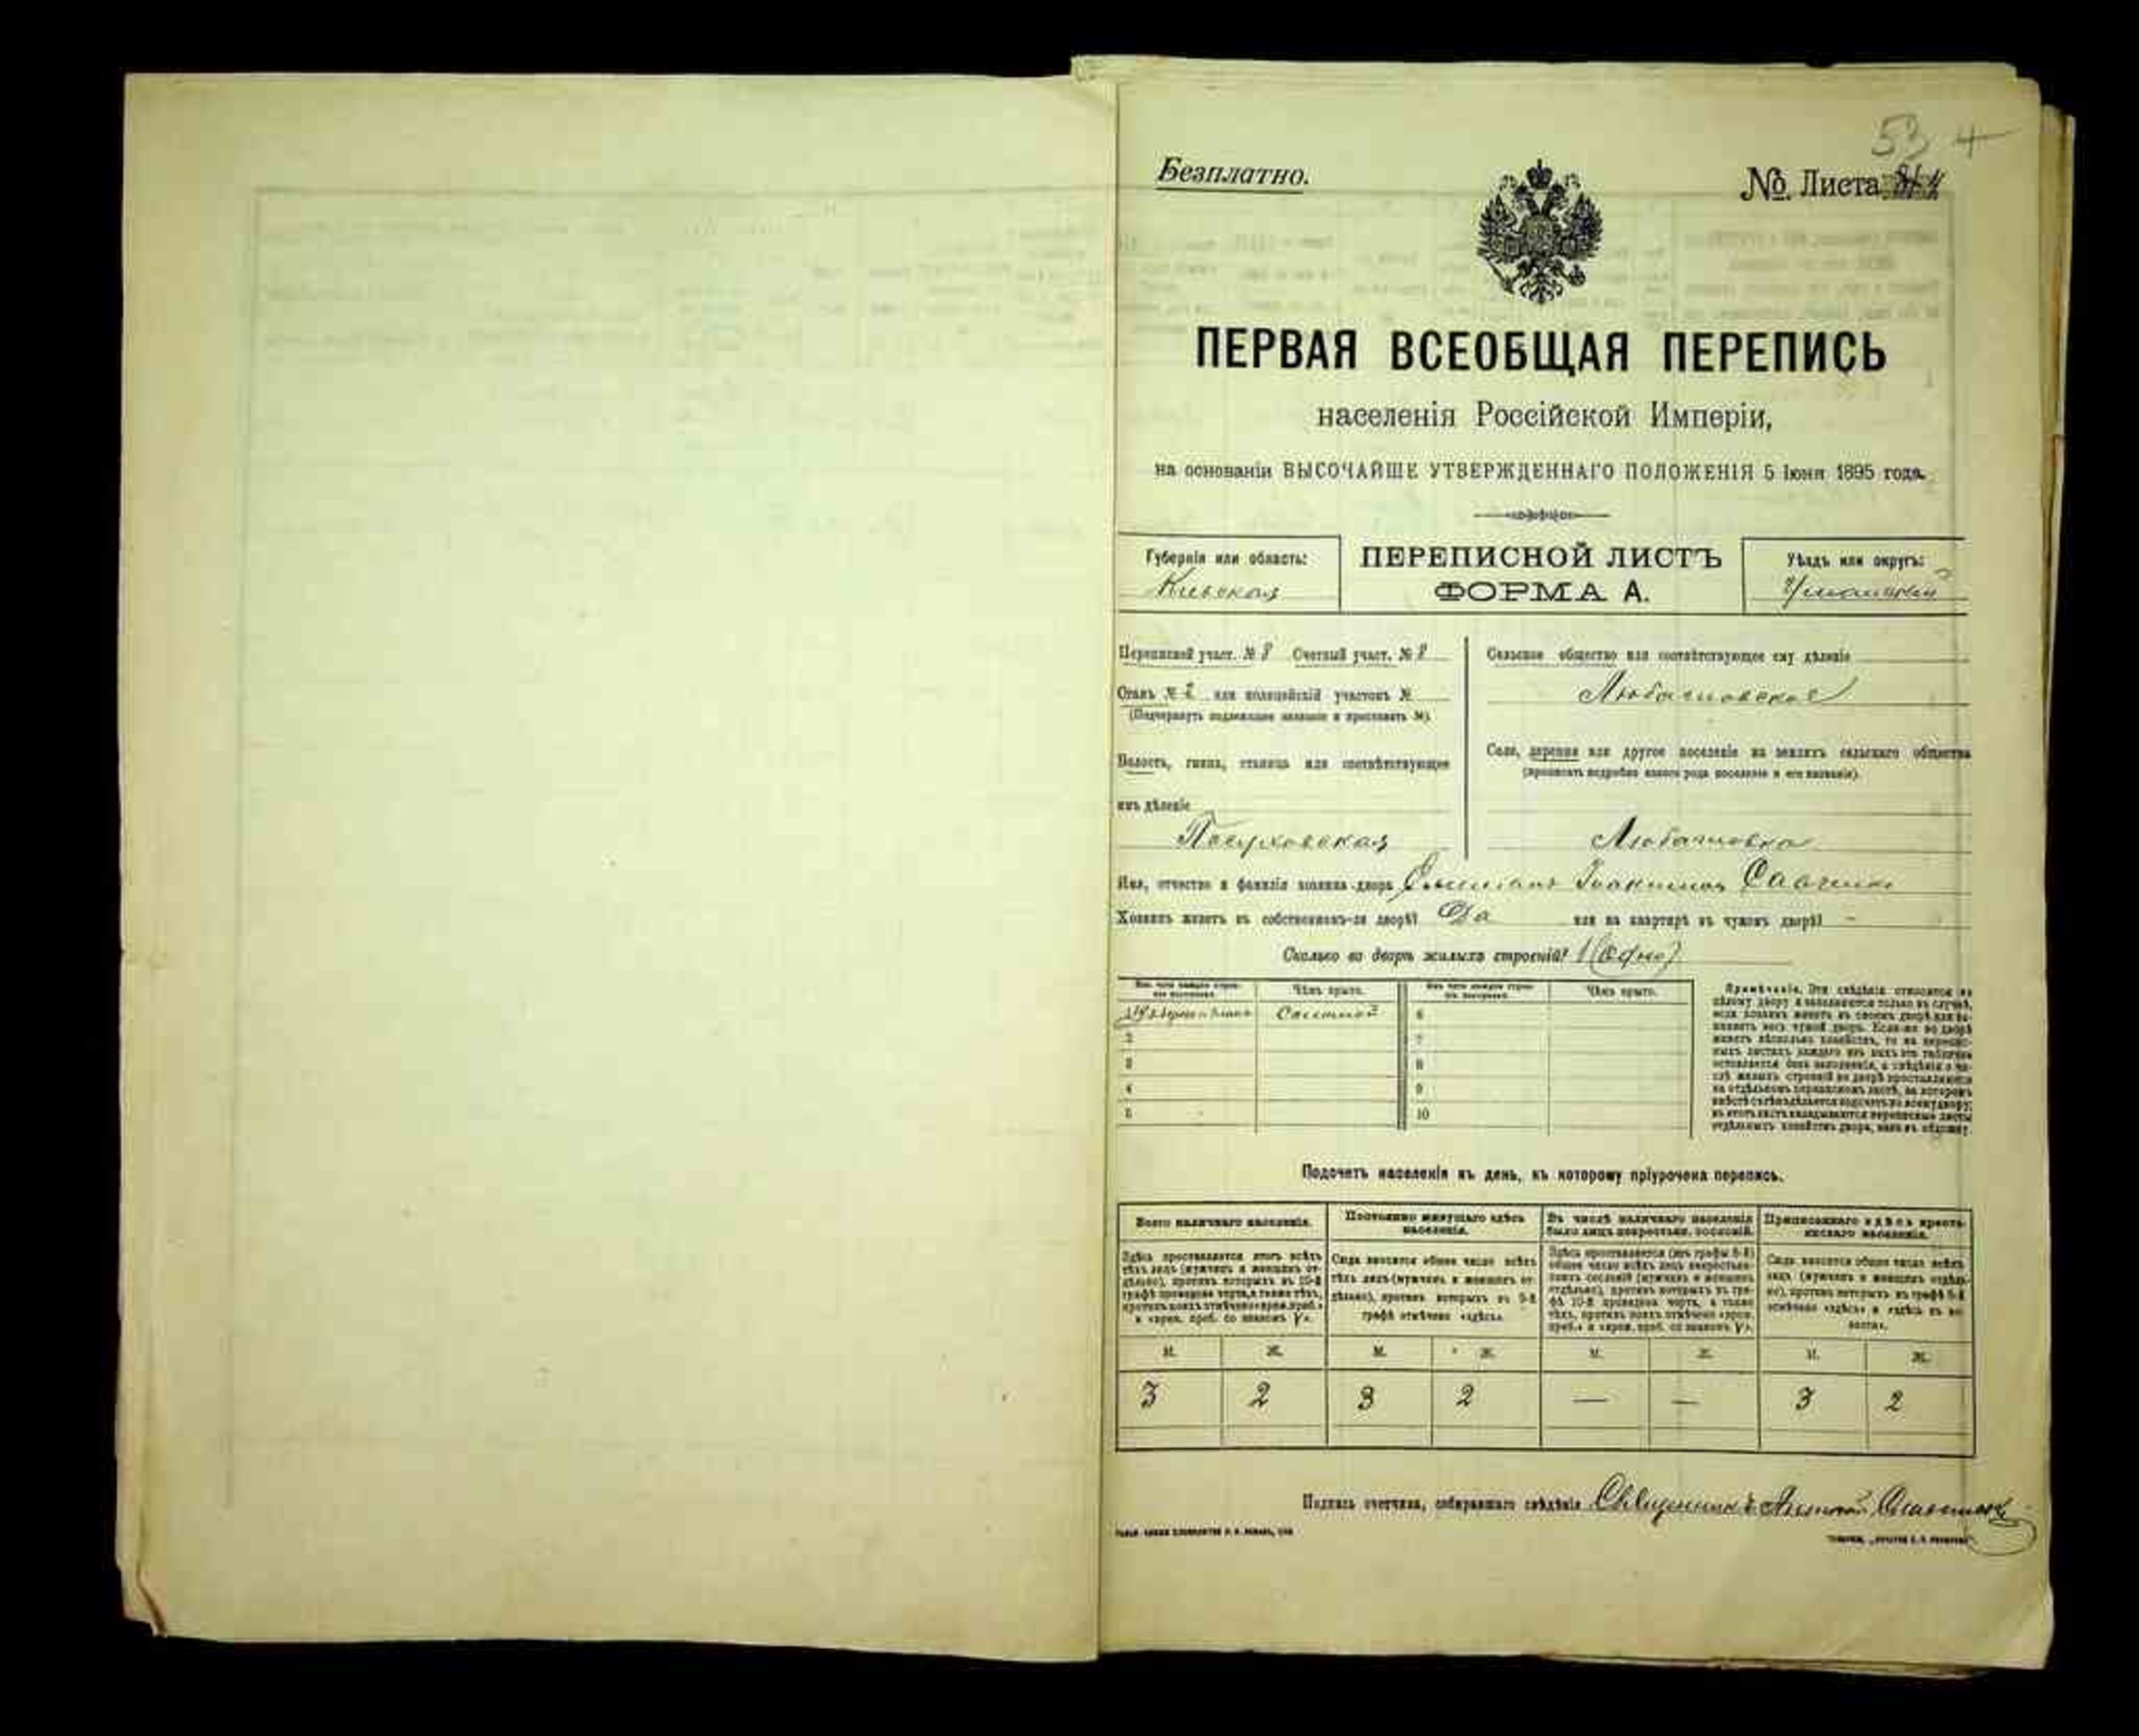 53 4
Безплатно.
№ Листа
ПЕРВАЯ ВСЕОБЩАЯ ПЕРЕПИСЬ
населенія Россійской Имперіи,
на основаніи ВЫСОЧАЙШЕ УТВЕРЖДЕННАГО ПОЛОЖЕНІЯ 5 Іюня 1895 года.
Губернія или область:
Кіевская
ПЕРЕПИСНОЙ ЛИСТЪ
ФОРМА А.
Уѣздъ или округъ:
Уманскій
Переписной участ. № 8 Счетный участ. № 8
Станъ № 2 или полицейскій участокъ №
(Подчеркнуть подлежащее названіе и проставить №).
Волость, гмина, станица или соотвѣтствующее
имъ дѣленіе
Посуховская
Сельское общество или соотвѣтствующее ему дѣленіе
Любашовское
Село, деревня или другое поселеніе на земляхъ сельскаго общества
(прописать подробно какого рода поселеніе и его названіе).
Любашовка
Имя, отчество и фамилія хозяина двора Іоакимовъ Савченко
Хозяинъ живетъ въ собственномъ-ли дворѣ? Да или на квартирѣ въ чужомъ дворѣ? -
Сколько во дворѣ жилыхъ строеній? 1 (Одно)
Изъ чего каждое строеніе построено.
Чѣмъ крыто.
Изъ чего каждое строеніе построено.
Чѣмъ крыто.
1 Соломой 6
2 7
3 8
4 9
5 10
Примѣчаніе. Эти свѣдѣнія относятся къ
цѣлому двору и заполняются только въ случаѣ,
если хозяинъ живетъ въ своемъ дворѣ или занимаетъ весь чужой дворъ. Если-же во дворѣ
живетъ нѣсколько хозяйствъ, то на переписныхъ листахъ каждаго изъ нихъ эта табличка
оставляется безъ заполненія, а свѣдѣнія о числѣ жилыхъ строеній во дворѣ проставляются
на отдѣльномъ переписномъ листѣ, на которомъ
вмѣстѣ съ тѣмъ дѣлается подсчетъ по всему двору;
въ этотъ листъ вкладываются переписные листы
отдѣльныхъ хозяйствъ двора, какъ въ обложку.
Подсчетъ населенія въ день, къ которому пріурочена перепись.
Всего наличнаго населенія.
Здѣсь проставляется итогъ всѣхъ
тѣхъ лицъ (мужчинъ и женщинъ отдѣльно), противъ которыхъ въ 10-й
графѣ проведена черта, а также тѣхъ,
противъ коихъ отмѣчено «врем. преб.»
и «врем. преб. со знакомъ V».
Постоянно живущаго здѣсь
населенія.
Сюда вносится общее число всѣхъ
тѣхъ лицъ (мужчинъ и женщинъ отдѣльно), противъ которыхъ въ 9-й
графѣ отмѣчено «здѣсь».
Въ числѣ наличнаго населенія
было лицъ некрестьян. сословій.
Здѣсь проставляется (изъ графы 6-й)
общее число всѣхъ лицъ некрестьянскихъ сословій (мужчинъ и женщинъ
отдѣльно), противъ которыхъ въ графѣ 10-й проведена черта, а также
тѣхъ, противъ коихъ отмѣчено «врем.
преб.» и «врем. преб. со знакомъ V».
Приписаннаго здѣсь крестьянскаго населенія.
Сюда вносится общее число всѣхъ
лицъ (мужчинъ и женщинъ отдѣльно), противъ которыхъ въ графѣ 8-й
отмѣчено «здѣсь» и «здѣсь въ волости».
М. Ж. М. Ж. М. Ж. М. Ж.
3 2 3 2 — — 3 2
Подпись счетчика, собиравшаго свѣдѣнія Священникъ Антоній